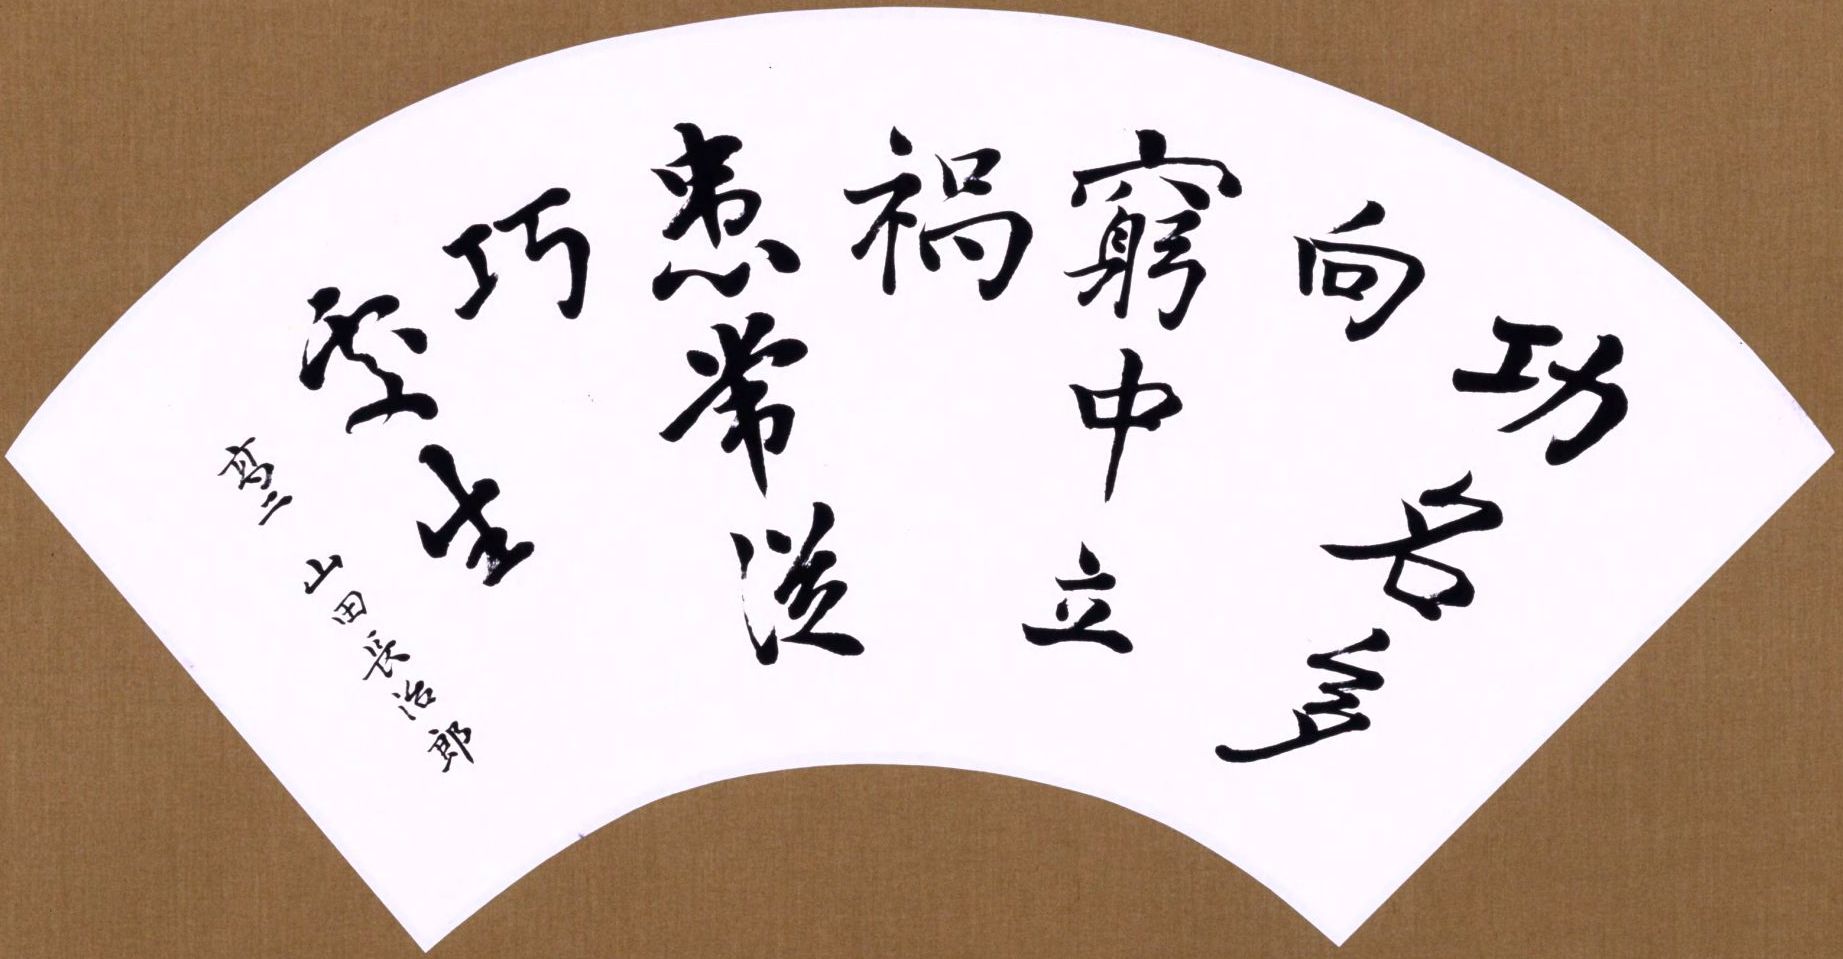 功名多
向
窮中立
禍
患常從
巧
處生
高二 山田長治郎